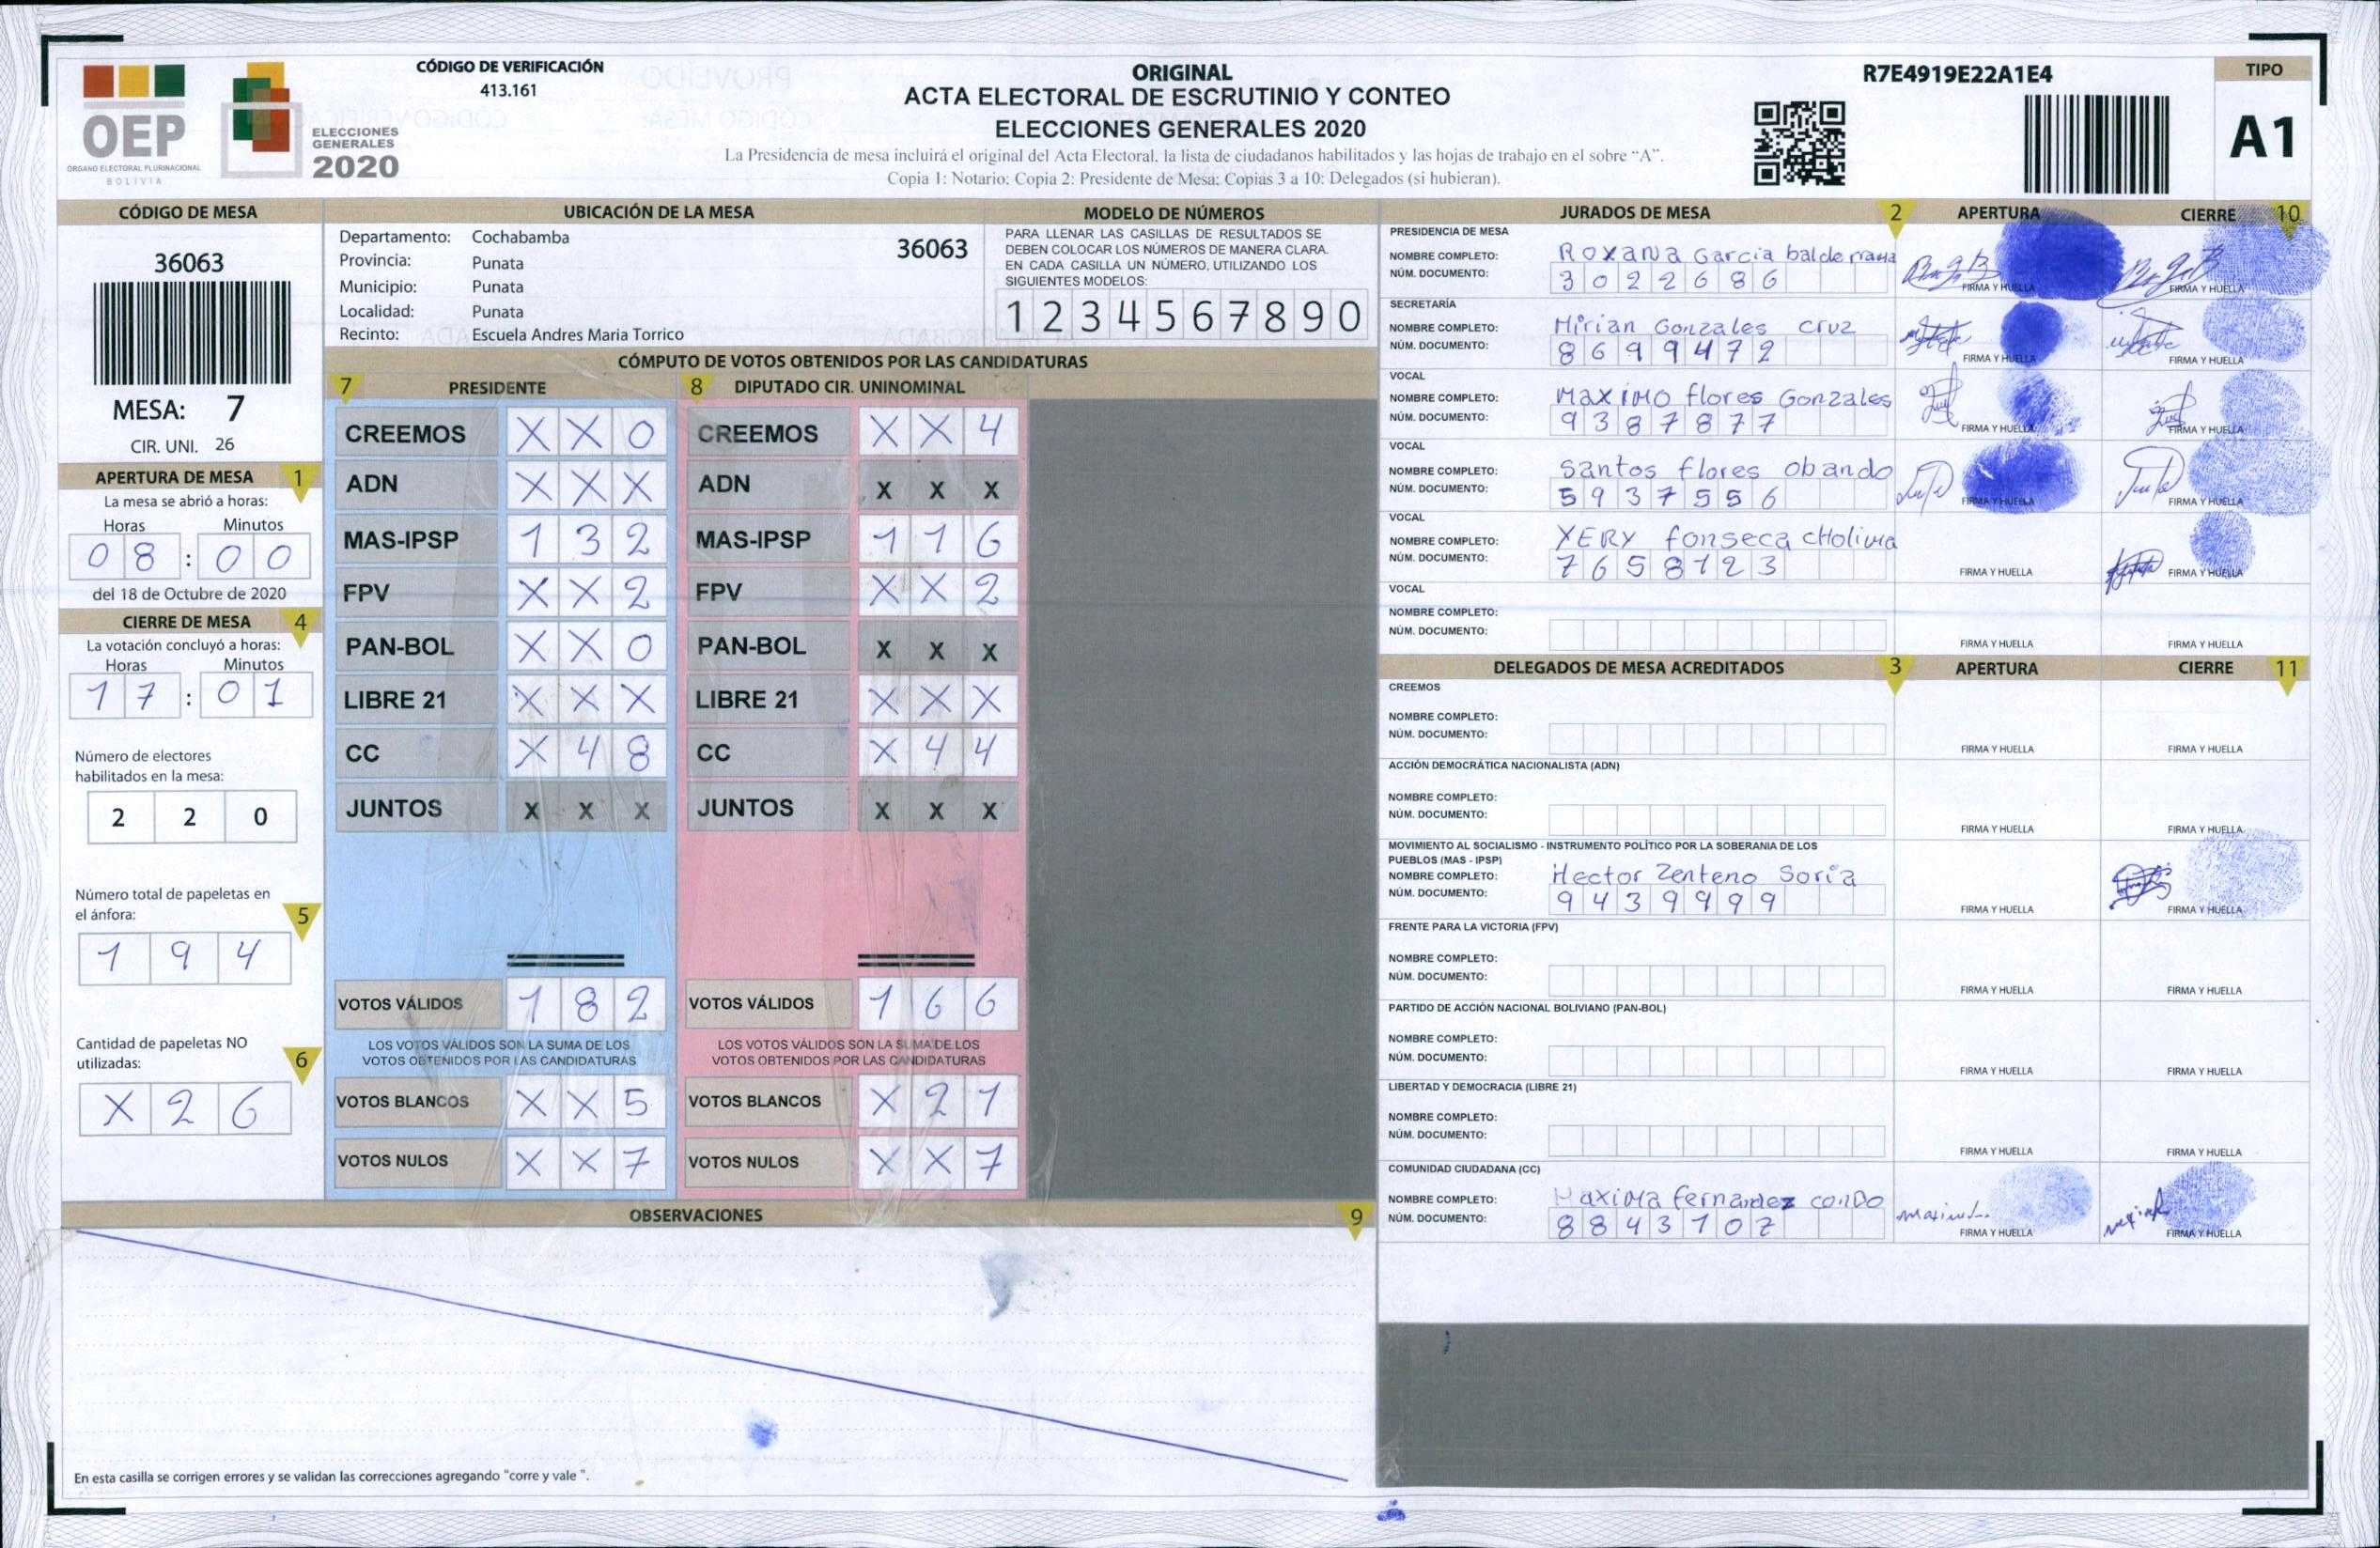 OEP
ÓRGANO ELECTORAL PLURINACIONAL
BOLIVIA
ELECCIONES
GENERALES
2020
CÓDIGO DE VERIFICACIÓN
413.161
ORIGINAL
ACTA ELECTORAL DE ESCRUTINIO Y CONTEO
ELECCIONES GENERALES 2020
La Presidencia de mesa incluirá el original del Acta Electoral, la lista de ciudadanos habilitados y las hojas de trabajo en el sobre “A”.
Copia 1: Notario; Copia 2: Presidente de Mesa; Copias 3 a 10: Delegados (si hubieran).
R7E4919E22A1E4
TIPO
A1
CÓDIGO DE MESA
36063
MESA: 7
CIR. UNI. 26
APERTURA DE MESA 1
La mesa se abrió a horas:
Horas Minutos
0 8 : 0 0
del 18 de Octubre de 2020
CIERRE DE MESA 4
La votación concluyó a horas:
Horas Minutos
1 7 : 0 1
Número de electores
habilitados en la mesa:
2 2 0
Número total de papeletas en
el ánfora: 5
1 9 4
Cantidad de papeletas NO
utilizadas: 6
X 2 6
UBICACIÓN DE LA MESA
Departamento: Cochabamba 36063
Provincia: Punata
Municipio: Punata
Localidad: Punata
Recinto: Escuela Andres Maria Torrico
MODELO DE NÚMEROS
PARA LLENAR LAS CASILLAS DE RESULTADOS SE
DEBEN COLOCAR LOS NÚMEROS DE MANERA CLARA.
EN CADA CASILLA UN NÚMERO, UTILIZANDO LOS
SIGUIENTES MODELOS:
1 2 3 4 5 6 7 8 9 0
CÓMPUTO DE VOTOS OBTENIDOS POR LAS CANDIDATURAS
7 PRESIDENTE 8 DIPUTADO CIR. UNINOMINAL
CREEMOS X X 0 CREEMOS X X 4
ADN X X X ADN X X X
MAS-IPSP 1 3 2 MAS-IPSP 1 1 6
FPV X X 2 FPV X X 2
PAN-BOL X X 0 PAN-BOL X X X
LIBRE 21 X X X LIBRE 21 X X X
CC X 4 8 CC X 4 4
JUNTOS X X X JUNTOS X X X
VOTOS VÁLIDOS 1 8 2 VOTOS VÁLIDOS 1 6 6
LOS VOTOS VÁLIDOS SON LA SUMA DE LOS LOS VOTOS VÁLIDOS SON LA SUMA DE LOS
VOTOS OBTENIDOS POR LAS CANDIDATURAS VOTOS OBTENIDOS POR LAS CANDIDATURAS
VOTOS BLANCOS X X 5 VOTOS BLANCOS X 2 1
VOTOS NULOS X X 7 VOTOS NULOS X X 7
OBSERVACIONES 9
En esta casilla se corrigen errores y se validan las correcciones agregando "corre y vale ".
JURADOS DE MESA 2 APERTURA CIERRE 10
PRESIDENCIA DE MESA
NOMBRE COMPLETO: Roxana Garcia balderrama
NÚM. DOCUMENTO: 3 0 2 2 6 8 6 FIRMA Y HUELLA FIRMA Y HUELLA
SECRETARÍA
NOMBRE COMPLETO: Mirian Gonzales cruz
NÚM. DOCUMENTO: 8 6 9 9 4 7 2 FIRMA Y HUELLA FIRMA Y HUELLA
VOCAL
NOMBRE COMPLETO: MaxiMO flores Gonzales
NÚM. DOCUMENTO: 9 3 8 7 8 7 7 FIRMA Y HUELLA FIRMA Y HUELLA
VOCAL
NOMBRE COMPLETO: Santos flores obando
NÚM. DOCUMENTO: 5 9 3 7 5 5 6 FIRMA Y HUELLA FIRMA Y HUELLA
VOCAL
NOMBRE COMPLETO: YERY fonseca cHolima
NÚM. DOCUMENTO: 7 6 5 8 1 2 3 FIRMA Y HUELLA FIRMA Y HUELLA
VOCAL
NOMBRE COMPLETO:
NÚM. DOCUMENTO: FIRMA Y HUELLA FIRMA Y HUELLA
DELEGADOS DE MESA ACREDITADOS 3 APERTURA CIERRE 11
CREEMOS
NOMBRE COMPLETO:
NÚM. DOCUMENTO: FIRMA Y HUELLA FIRMA Y HUELLA
ACCIÓN DEMOCRÁTICA NACIONALISTA (ADN)
NOMBRE COMPLETO:
NÚM. DOCUMENTO: FIRMA Y HUELLA FIRMA Y HUELLA
MOVIMIENTO AL SOCIALISMO - INSTRUMENTO POLÍTICO POR LA SOBERANIA DE LOS
PUEBLOS (MAS - IPSP)
NOMBRE COMPLETO: Hector Zenteno Soria
NÚM. DOCUMENTO: 9 4 3 9 9 9 9 FIRMA Y HUELLA FIRMA Y HUELLA
FRENTE PARA LA VICTORIA (FPV)
NOMBRE COMPLETO:
NÚM. DOCUMENTO: FIRMA Y HUELLA FIRMA Y HUELLA
PARTIDO DE ACCIÓN NACIONAL BOLIVIANO (PAN-BOL)
NOMBRE COMPLETO:
NÚM. DOCUMENTO: FIRMA Y HUELLA FIRMA Y HUELLA
LIBERTAD Y DEMOCRACIA (LIBRE 21)
NOMBRE COMPLETO:
NÚM. DOCUMENTO: FIRMA Y HUELLA FIRMA Y HUELLA
COMUNIDAD CIUDADANA (CC)
NOMBRE COMPLETO: Maxima fernandez conDo
NÚM. DOCUMENTO: 8 8 4 3 1 0 7 FIRMA Y HUELLA FIRMA Y HUELLA